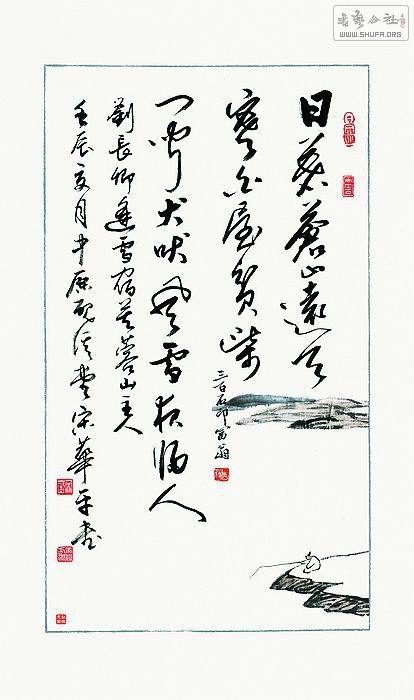 书艺公社
WWW.SHUFA.ORG
日暮蒼山遠天
寒白屋貧柴
門聞犬吠風雪夜歸人
劉長卿逢雪宿芙蓉山主人
壬辰夏月中原宋華平書
三百石印富翁